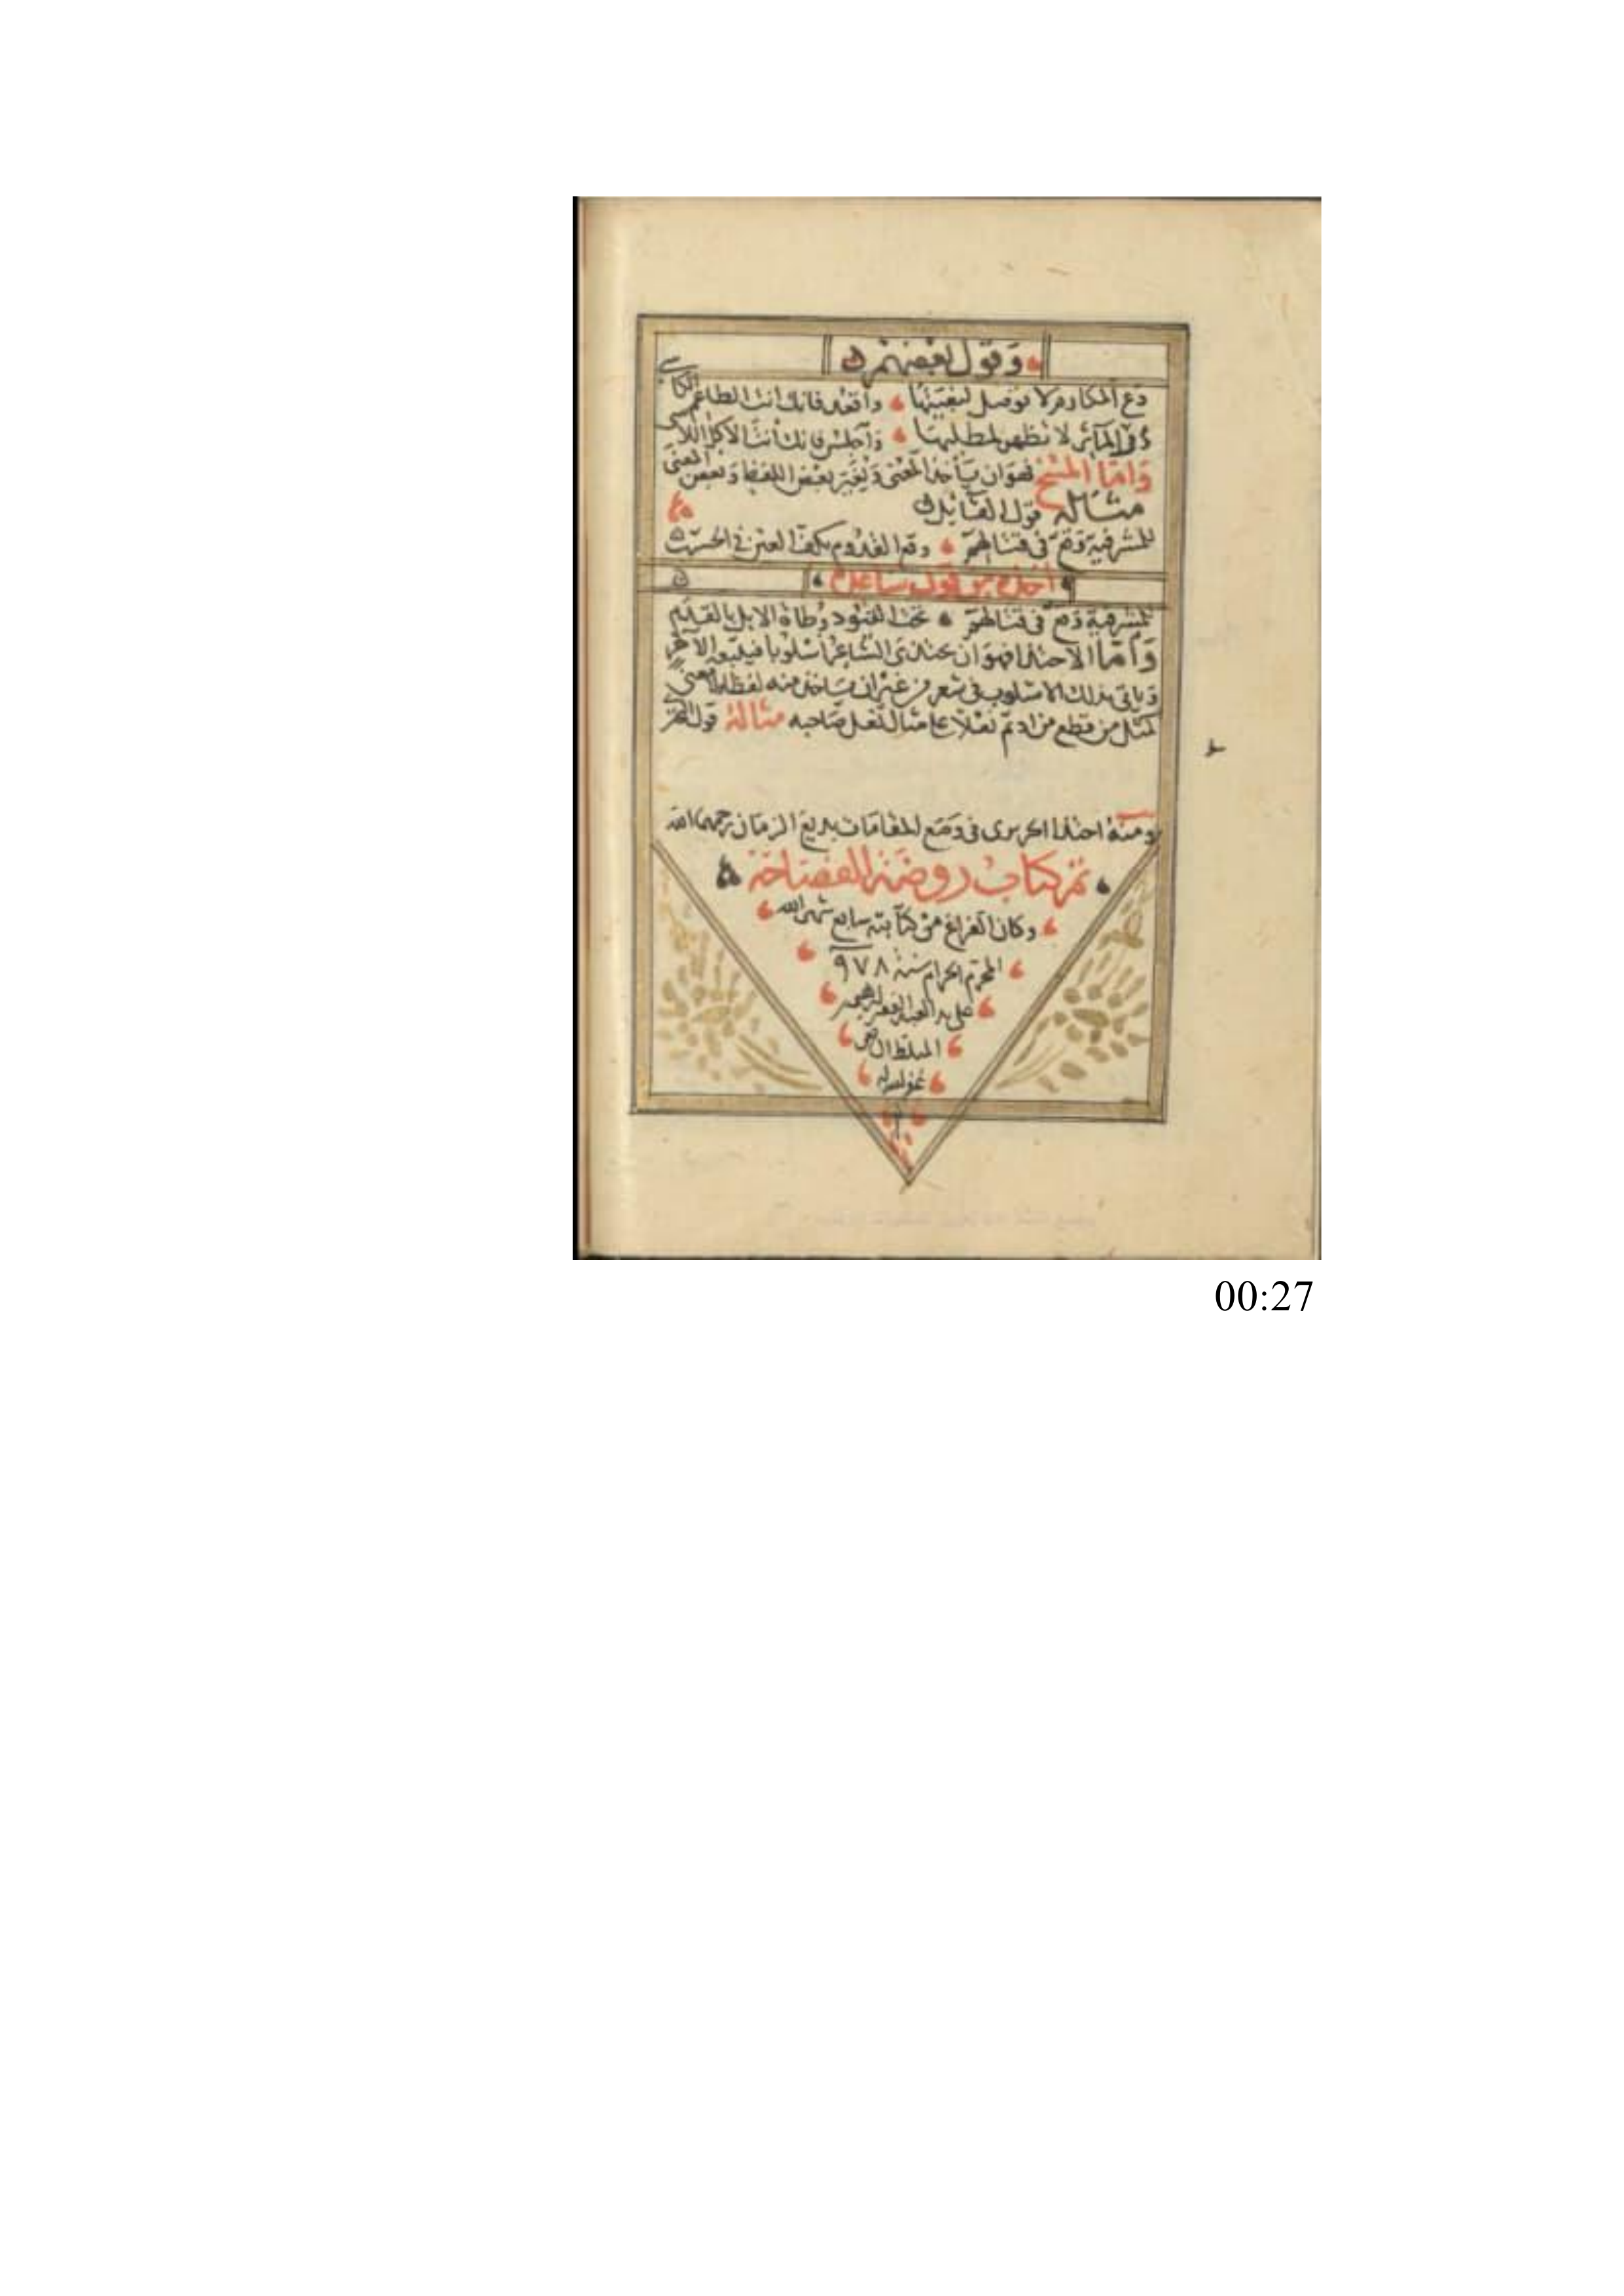 وقول بعضهم
دع المكارم لا توصل لبغيتها واقعد فانك انت الطاعم الكاسي
المآثر لا تظهر لمطلبها واجلس فانك انت الاكل اللاسي
واما المسخ فهوان ياخذ المعنى ويغير بعض اللفظ وبعض المعنى
مثاله قول القائل
المشرفية وقع في قتالهم وقع القدوم بكف العين في الخشب
اخذه من قول ساعدة
المشرفية وقع في تحت القيود وطاة الابل بالقدم
واما الاحتذا فهو ان يحتذى الشاعر اسلوبا فيلتبعه الآخر
وياتي بذلك الاسلوب في شعره من غير ان ياخذ منه لفظا ولا معنى
كمثل من قطع من اديم نعلا على مثال نعل صاحبه مثاله قول
ومنه احتذا الحريرى في وضع المقامات بديع الزمان رحمهما الله
تم كتاب روضة الفصاحة
وكان الفراغ من كتابته سابع شهر الله
المحرم الحرام سنة ٩٧٨
على يد العبد الفقير
غفر له
00:27